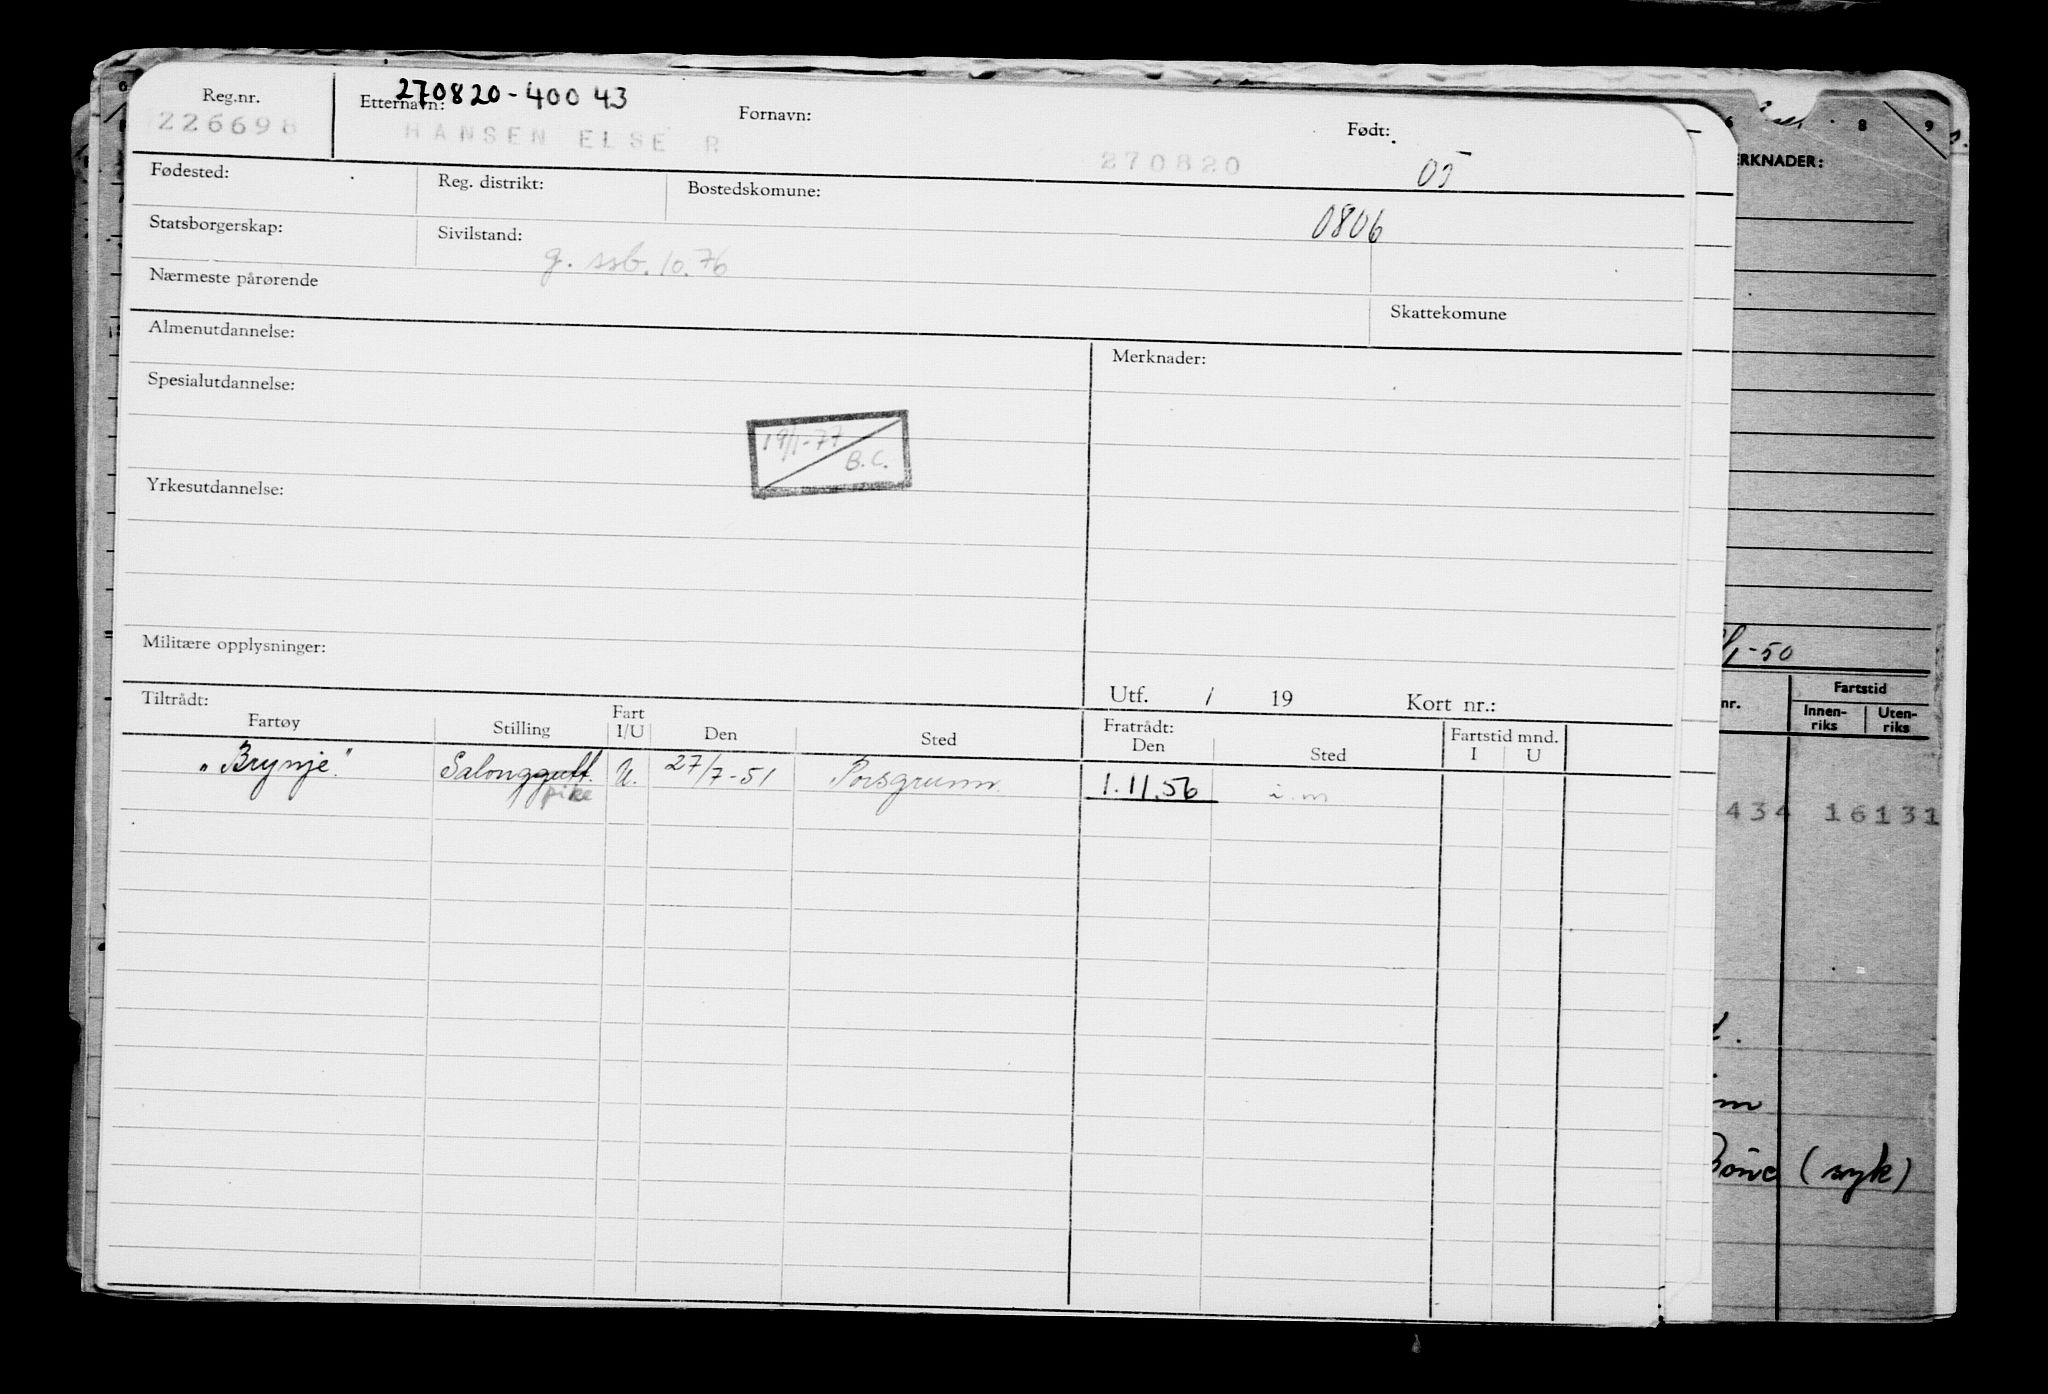 270820-40043
Reg.nr. Etternavn: Fornavn: Født:
226698 HANSEN ELSE R 270820 05
Fødested: Reg. distrikt: Bostedskomune:
0806
Statsborgerskap: Sivilstand:
g. ssb. 10.76
Nærmeste pårørende
Skattekomune
Almenutdannelse:
Merknader:
Spesialutdannelse:
19/1-77
B.C.
Yrkesutdannelse:
Militære opplysninger:
Utf. / 19 Kort nr.:
Tiltrådt: Fratrådt: Fartstid mnd.
Fartøy Stilling Fart I/U Den Sted Den Sted I U
"Brynje" Salonggutt. U. 27/7-51 Porsgrunn. 1.11.56 i.m
pike
6 8 9
ERKNADER:
/1-50
nr. Fartstid
Innen-riks Uten-riks
434 16131
d.
m
(syk)